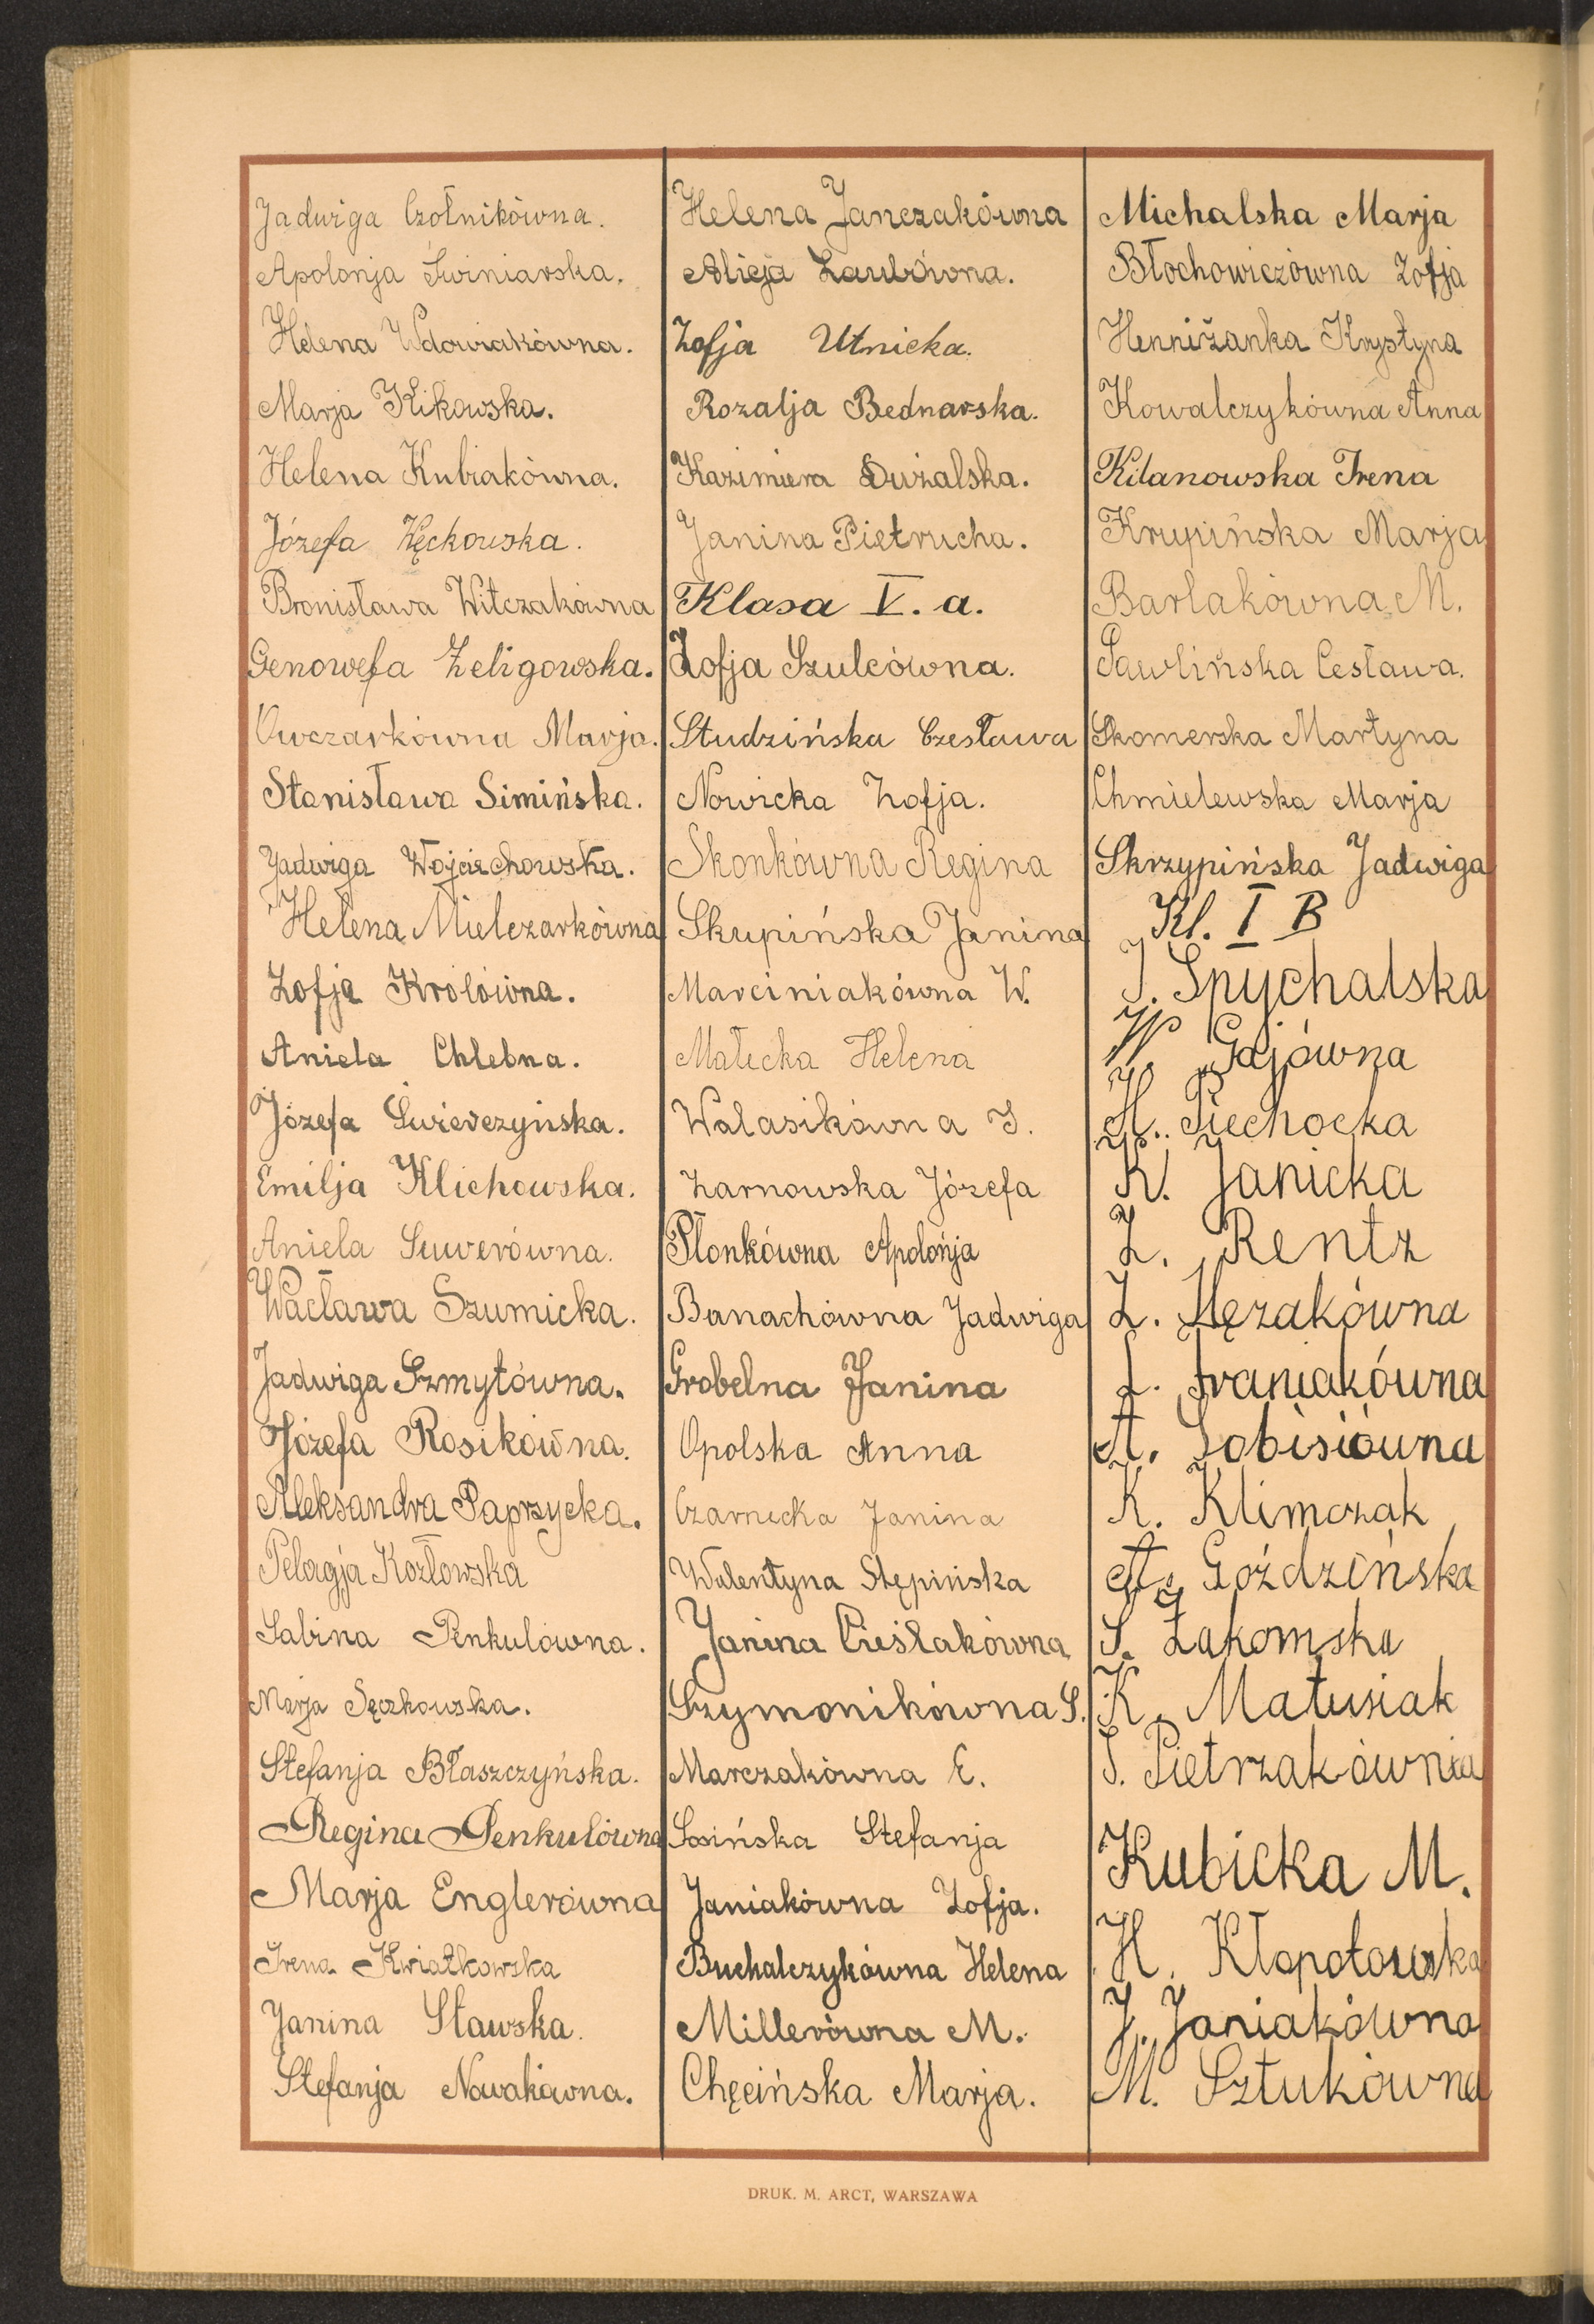 Jadwiga Czołnikówna.
Apolonja Świniarska.
Helena Wdowiakówna.
Marja Kikowska.
Helena Kubiakówna.
Józefa Kęckowska.
Bronisława Witczakówna
Genowefa Żeligowska.
Owczarkówna Marja.
Stanisława Simińska.
Jadwiga Wojciechowska.
Helena Mielczarkówna
Zofja Królówna.
Aniela Chlebna.
Józefa Świerczyńska.
Emilja Klichowska.
Aniela Suwerówna.
Wacława Szumicka.
Jadwiga Szmytówna.
Józefa Rosikówna.
Aleksandra Paprzycka.
Pelagja Kozłowska
Sabina Penkulówna.
Marja Sęczkowska.
Stefanja Błaszczyńska.
Regina Penkulówna
Marja Englerówna
Irena Kwiatkowska
Janina Sławska.
Stefanja Nowakówna.
Helena Janczakówna
Alicja Laubówna.
Zofja Utnicka.
Rozalja Bednarska.
Kazimiera Dużalska.
Janina Pietrucha.
Klasa V. a.
Zofja Szulcówna.
Studzińska Czesława
Nowicka Zofja.
Skonkówna Regina
Skupińska Janina
Marciniakówna W.
Małecka Helena
Walasikówna I.
Żarnowska Józefa
Płonkówna Apolonja
Banachówna Jadwiga
Grobelna Janina
Opolska Anna
Czarnecka Janina
Walentyna Stępińska
Janina Cieślakówna
Szymonikówna S.
Marczakówna E.
Sosińska Stefanja
Janiakówna Zofja.
Buchalczykówna Helena
Millerówna M.
Chęcińska Marja.
Michalska Marja
Błochowiczówna Zofja
Henniżanka Krystyna
Kowalczykówna Anna
Kilanowska Irena
Krupińska Marja
Barłakówna M.
Pawlińska Cesława.
Skomerska Martyna
Chmielewska Marja
Skrzypińska Jadwiga
Kl. I B
J. Spychalska
W. Gajówna
H. Piechocka
K. Janicka
Z. Rentz
Z. Męzakówna
L. Franiakówna
A. Sobisiówna
K. Klimczak
A. Goździńska
S. Żakomska
K. Matusiak
S. Pietrzakówna
Kubicka M.
H. Kłopotowska
J. Janiakówna
M. Sztukówna
DRUK. M. ARCT, WARSZAWA